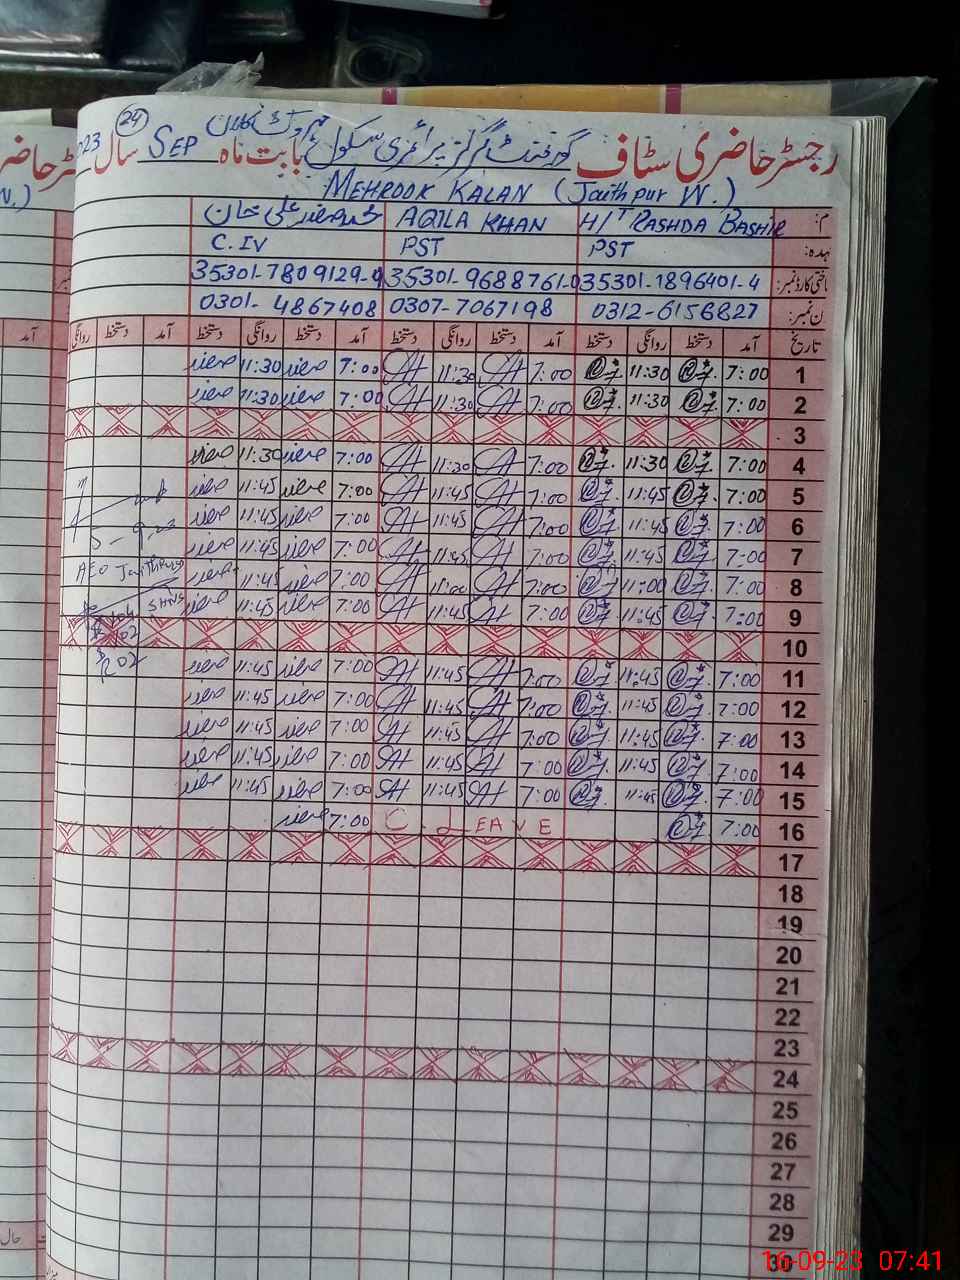 رجسٹر حاضری سٹاف گورنمنٹ گرلز پرائمری سکول مہروک کلاں بابت ماہ SEP سال 23
24
MEHROOK KALAN (Jaithpur W.)
H/T RASHDA BASHIR AQILA KHAN محمد صفدر علی خان
عہدہ: PST PST C.IV
شناختی کارڈ نمبر: 35301-1896401-4 35301-9688761-0 35301-7809129-9
فون نمبر: 0312-6156827 0307-7067198 0301-4867408
تاریخ آمد دستخط روانگی دستخط آمد دستخط روانگی دستخط آمد دستخط روانگی دستخط آمد دستخط روانگی
1 7:00 11:30 7:00 11:30 7:00 صفدر 11:30 صفدر
2 7:00 11:30 7:00 11:30 7:00 صفدر 11:30 صفدر
3
4 7:00 11:30 7:00 11:30 7:00 صفدر 11:30 صفدر
5 7:00 11:45 7:00 11:45 7:00 صفدر 11:45 صفدر
6 7:00 11:45 7:00 11:45 7:00 صفدر 11:45 صفدر
5-9-23
7 7:00 11:45 7:00 11:45 7:00 صفدر 11:45 صفدر
AEO Jaithpur
8 7:00 11:00 7:00 11:00 7:00 صفدر 11:45 صفدر
9 7:00 11:45 7:00 11:45 7:00 صفدر 11:45 صفدر
10
11 7:00 11:45 7:00 11:45 7:00 صفدر 11:45 صفدر
R 02
12 7:00 11:45 7:00 11:45 7:00 صفدر 11:45 صفدر
13 7:00 11:45 7:00 11:45 7:00 صفدر 11:45 صفدر
14 7:00 11:45 7:00 11:45 7:00 صفدر 11:45 صفدر
15 7:00 11:45 7:00 11:45 7:00 صفدر 11:45 صفدر
16 7:00 C. LEAVE 7:00 صفدر
17
18
19
20
21
22
23
24
25
26
27
28
29
30
16-09-23 07:41